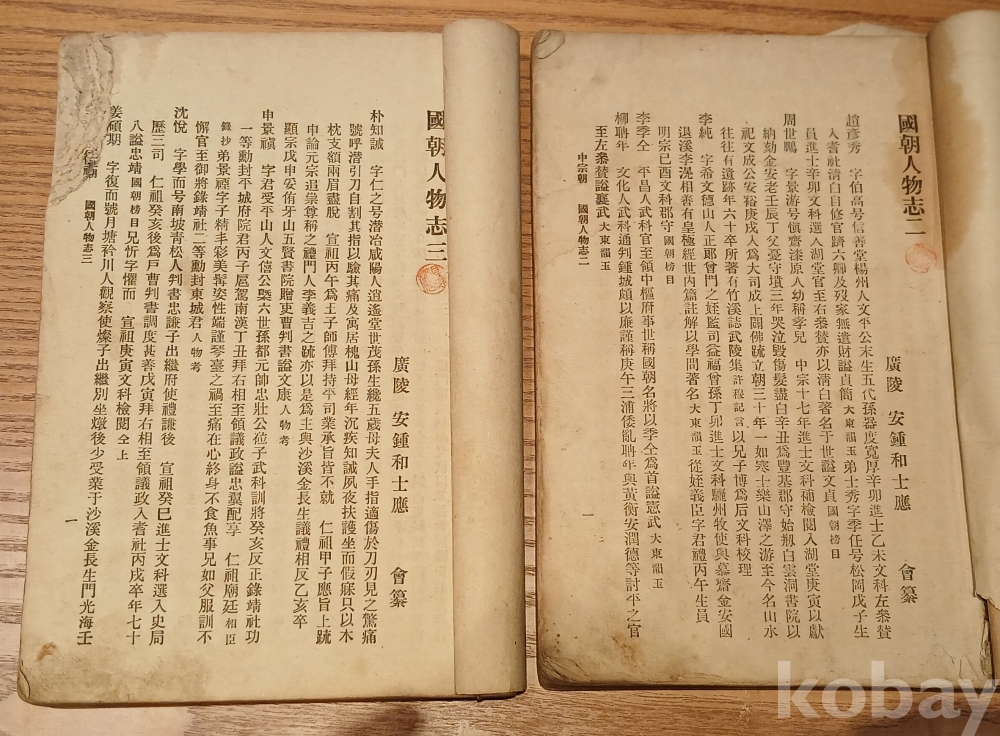 國朝人物志二
廣陵 安鍾和士應 會纂
趙彥秀 字伯高号信善堂楊州人文平公末生五代孫器度寬厚辛卯進士乙未文科左叅賛
入耆社清白自修官躋六卿及歿家無遺財謚貞簡 大東韻玉 弟士秀字季任号松岡戊子生
員進士辛卯文科選入湖堂官至右叅賛亦以淸白著名于世謚文貞 國朝榜目
周世鵬 字景游号愼齋漆原人幼稱孝兒 中宗十七年進士文科補檢閱入湖堂庚寅以獻
納劾金安老壬辰丁父憂守墳三年哭泣毀傷髮盡白辛丑爲豐基郡守始刱白雲洞書院以
祀文成公安裕庚戌入爲大司成上闢佛䟽立朝三十年一如寒士樂山澤之游至今名山水
往往有遺跡年六十卒所著有竹溪誌武陵集 許穆記言 以兄子博爲后文科校理
李純 字希文德山人正郞曾門之姪監司益福曾孫丁卯進士文科驪州牧使與慕齋金安國
退溪李滉相善有皇極經世內篇註解以學問著名 大東韻玉 從姪義臣字君禮丙午生員
明宗己酉文科郡守 國朝榜目
李季仝 平昌人武科官至領中樞府事世稱國朝名將以季仝爲首謚憲武 大東韻玉
柳聃年 文化人武科通判鍾城頗以廉謹稱庚午三浦倭亂聃年與黃衡安潤德等討平之官
至左叅賛謚襄武 大東韻玉
中宗朝 國朝人物志二
一
國朝人物志三
廣陵 安鍾和士應 會纂
朴知誠 字仁之号潛冶咸陽人逍遙堂世茂孫生纔五歲母夫人手指適傷於刀刃見之驚痛
號呼潛引刀自割其指以驗其痛及寓居槐山母經年沉疾知誠夙夜扶護坐而假寐只以木
枕支額兩眉盡脫 宣祖丙午爲王子師傅拜持平司業承旨皆不就 仁祖甲子應旨上䟽
申論元宗追崇尊稱之禮門人李義吉之䟽亦以是爲主與沙溪金長生議禮相反乙亥卒
顯宗戊申安侑牙山五賢書院贈吏曹判書謚文康 人物考
申景禛 字君受平山人文僖公槩六世孫都元帥忠壯公砬子武科訓將癸亥反正錄靖社功
一等勳封平城府院君丙子扈駕南漢丁丑拜右相至領議政謚忠翼配享 仁祖廟廷 相臣
錄抄 弟景禋字子精丰彩美髯姿性端謹琴臺之禍至痛在心終身不食魚事兄如父服訓不
懈官至御將錄靖社二等勳封東城君 人物考
沈悅 字學而号南坡靑松人判書忠謙子出繼府使禮謙後 宣祖癸巳進士文科選入史局
歷三司 仁祖癸亥後爲戶曹判書調度甚善戊寅拜右相至領議政入耆社丙戌卒年七十
八謚忠靖 國朝榜目 兄忻字懼而 宣祖庚寅文科檢閱 仝上
姜碩期 字復而號月塘衿川人觀察使燦子出繼別坐燉後少受業于沙溪金長生門光海壬
國朝人物志三
一
kobay